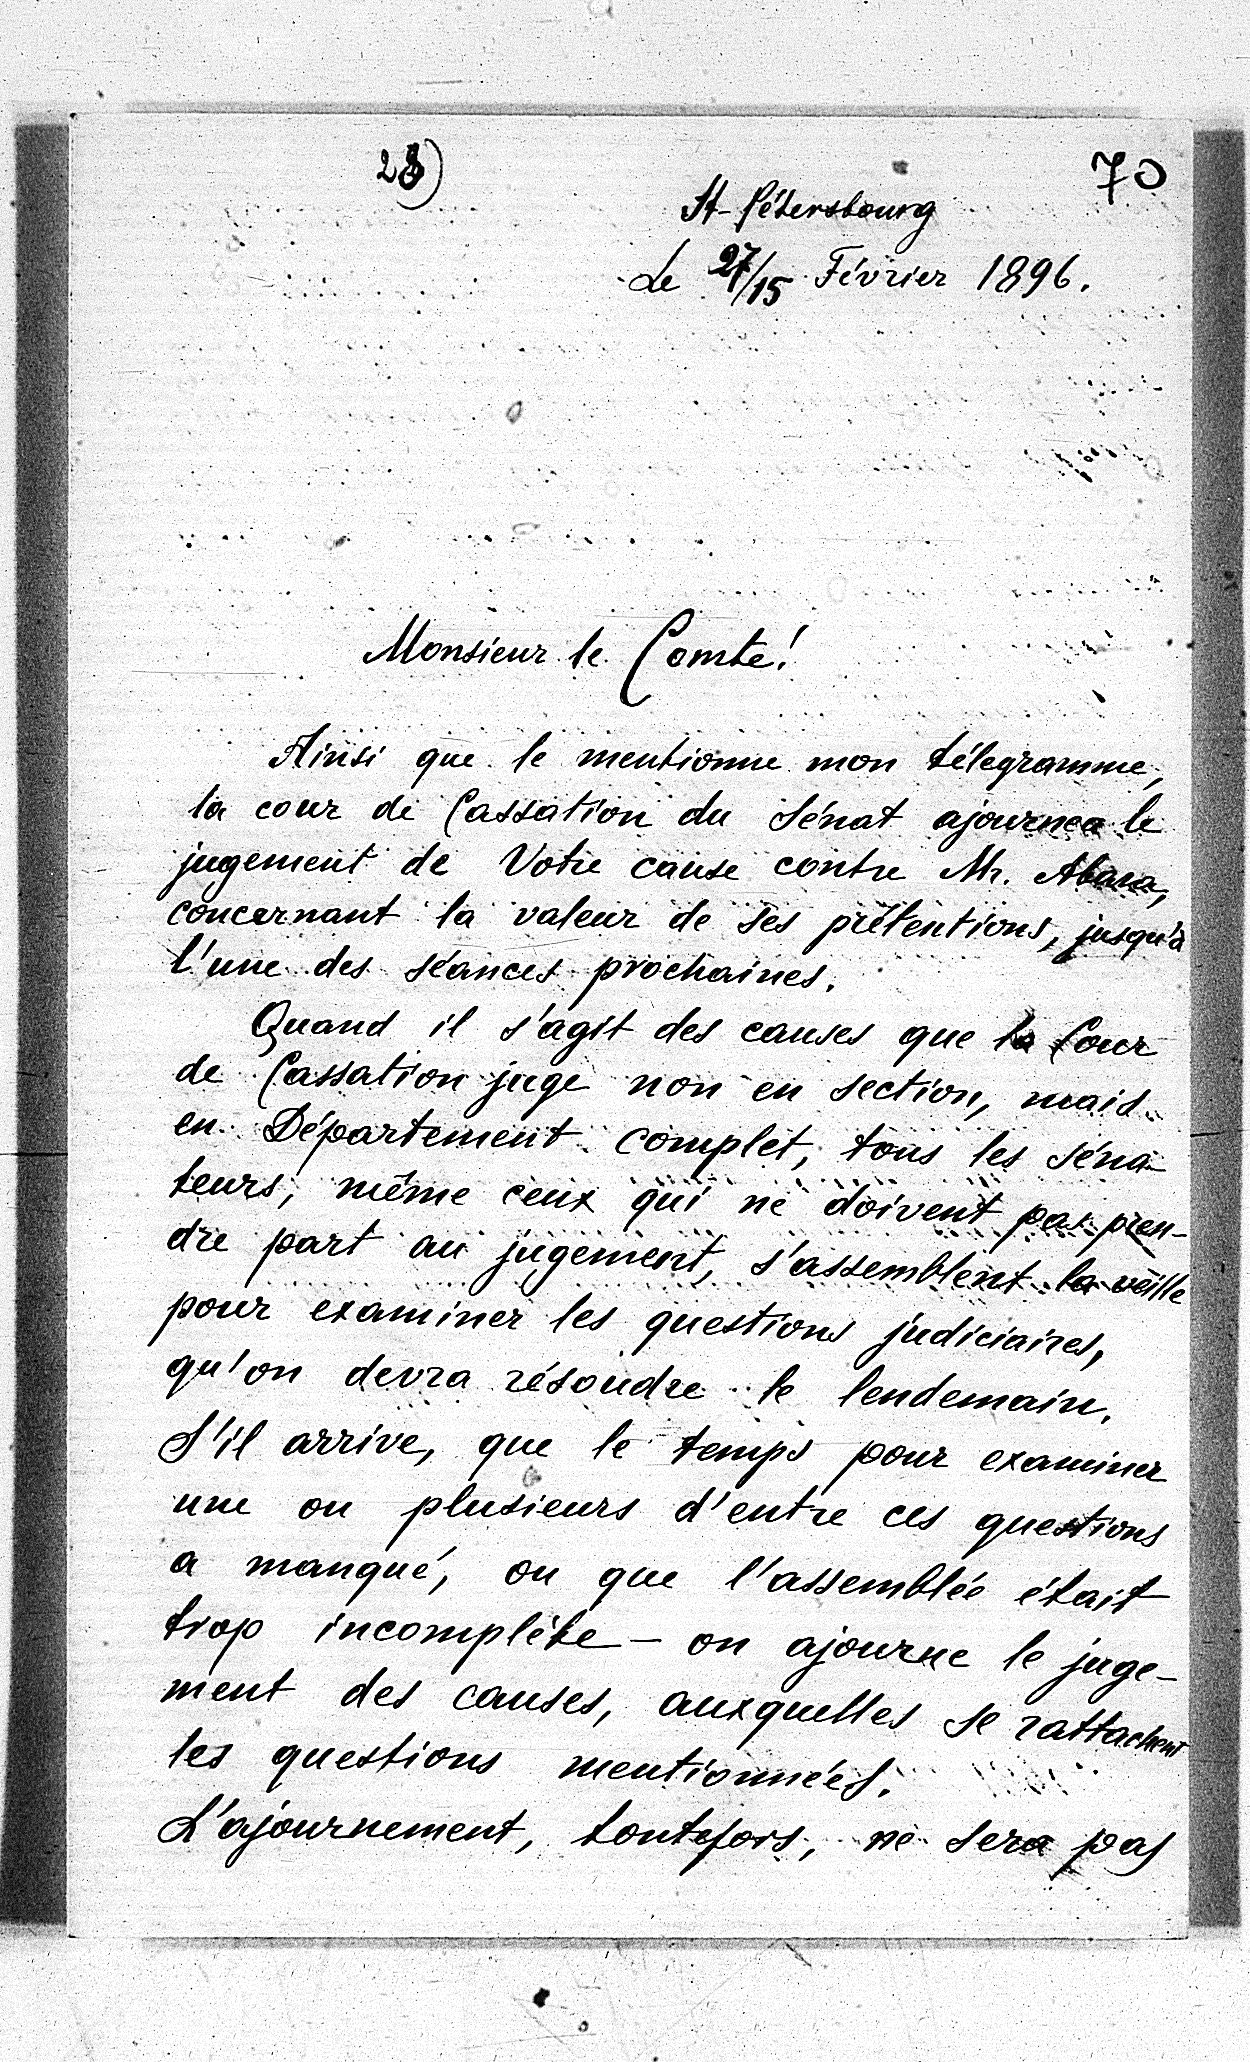 28)
70
St-Pétersbourg
Le 27/15 Février 1896.
Monsieur le Comte!
Ainsi que le mentionne mon télegramme,
la cour de Cassation du Sénat ajournea le
jugement de Votre cause contre Mr. Abaza,
concernant la valeur de ses prétentions, jusqu'à
l'une des séances prochaines.
Quand il s'agit des causes que la Cour
de Cassation juge non en section, mais
en Département complet, tous les séna-
teurs, même ceux qui ne doivent pas pren-
dre part au jugement, s'assemblent la veille
pour examiner les questions judiciaires,
qu'on devra résoudre le lendemain.
S'il arrive, que le temps pour examiner
une ou plusieurs d'entre ces questions
a manqué, ou que l'assemblée était
trop incomplète - on ajourne le juge-
ment des causes, auxquelles se rattachent
les questions mentionnées.
L'ajournement, toutefois, ne sera pas